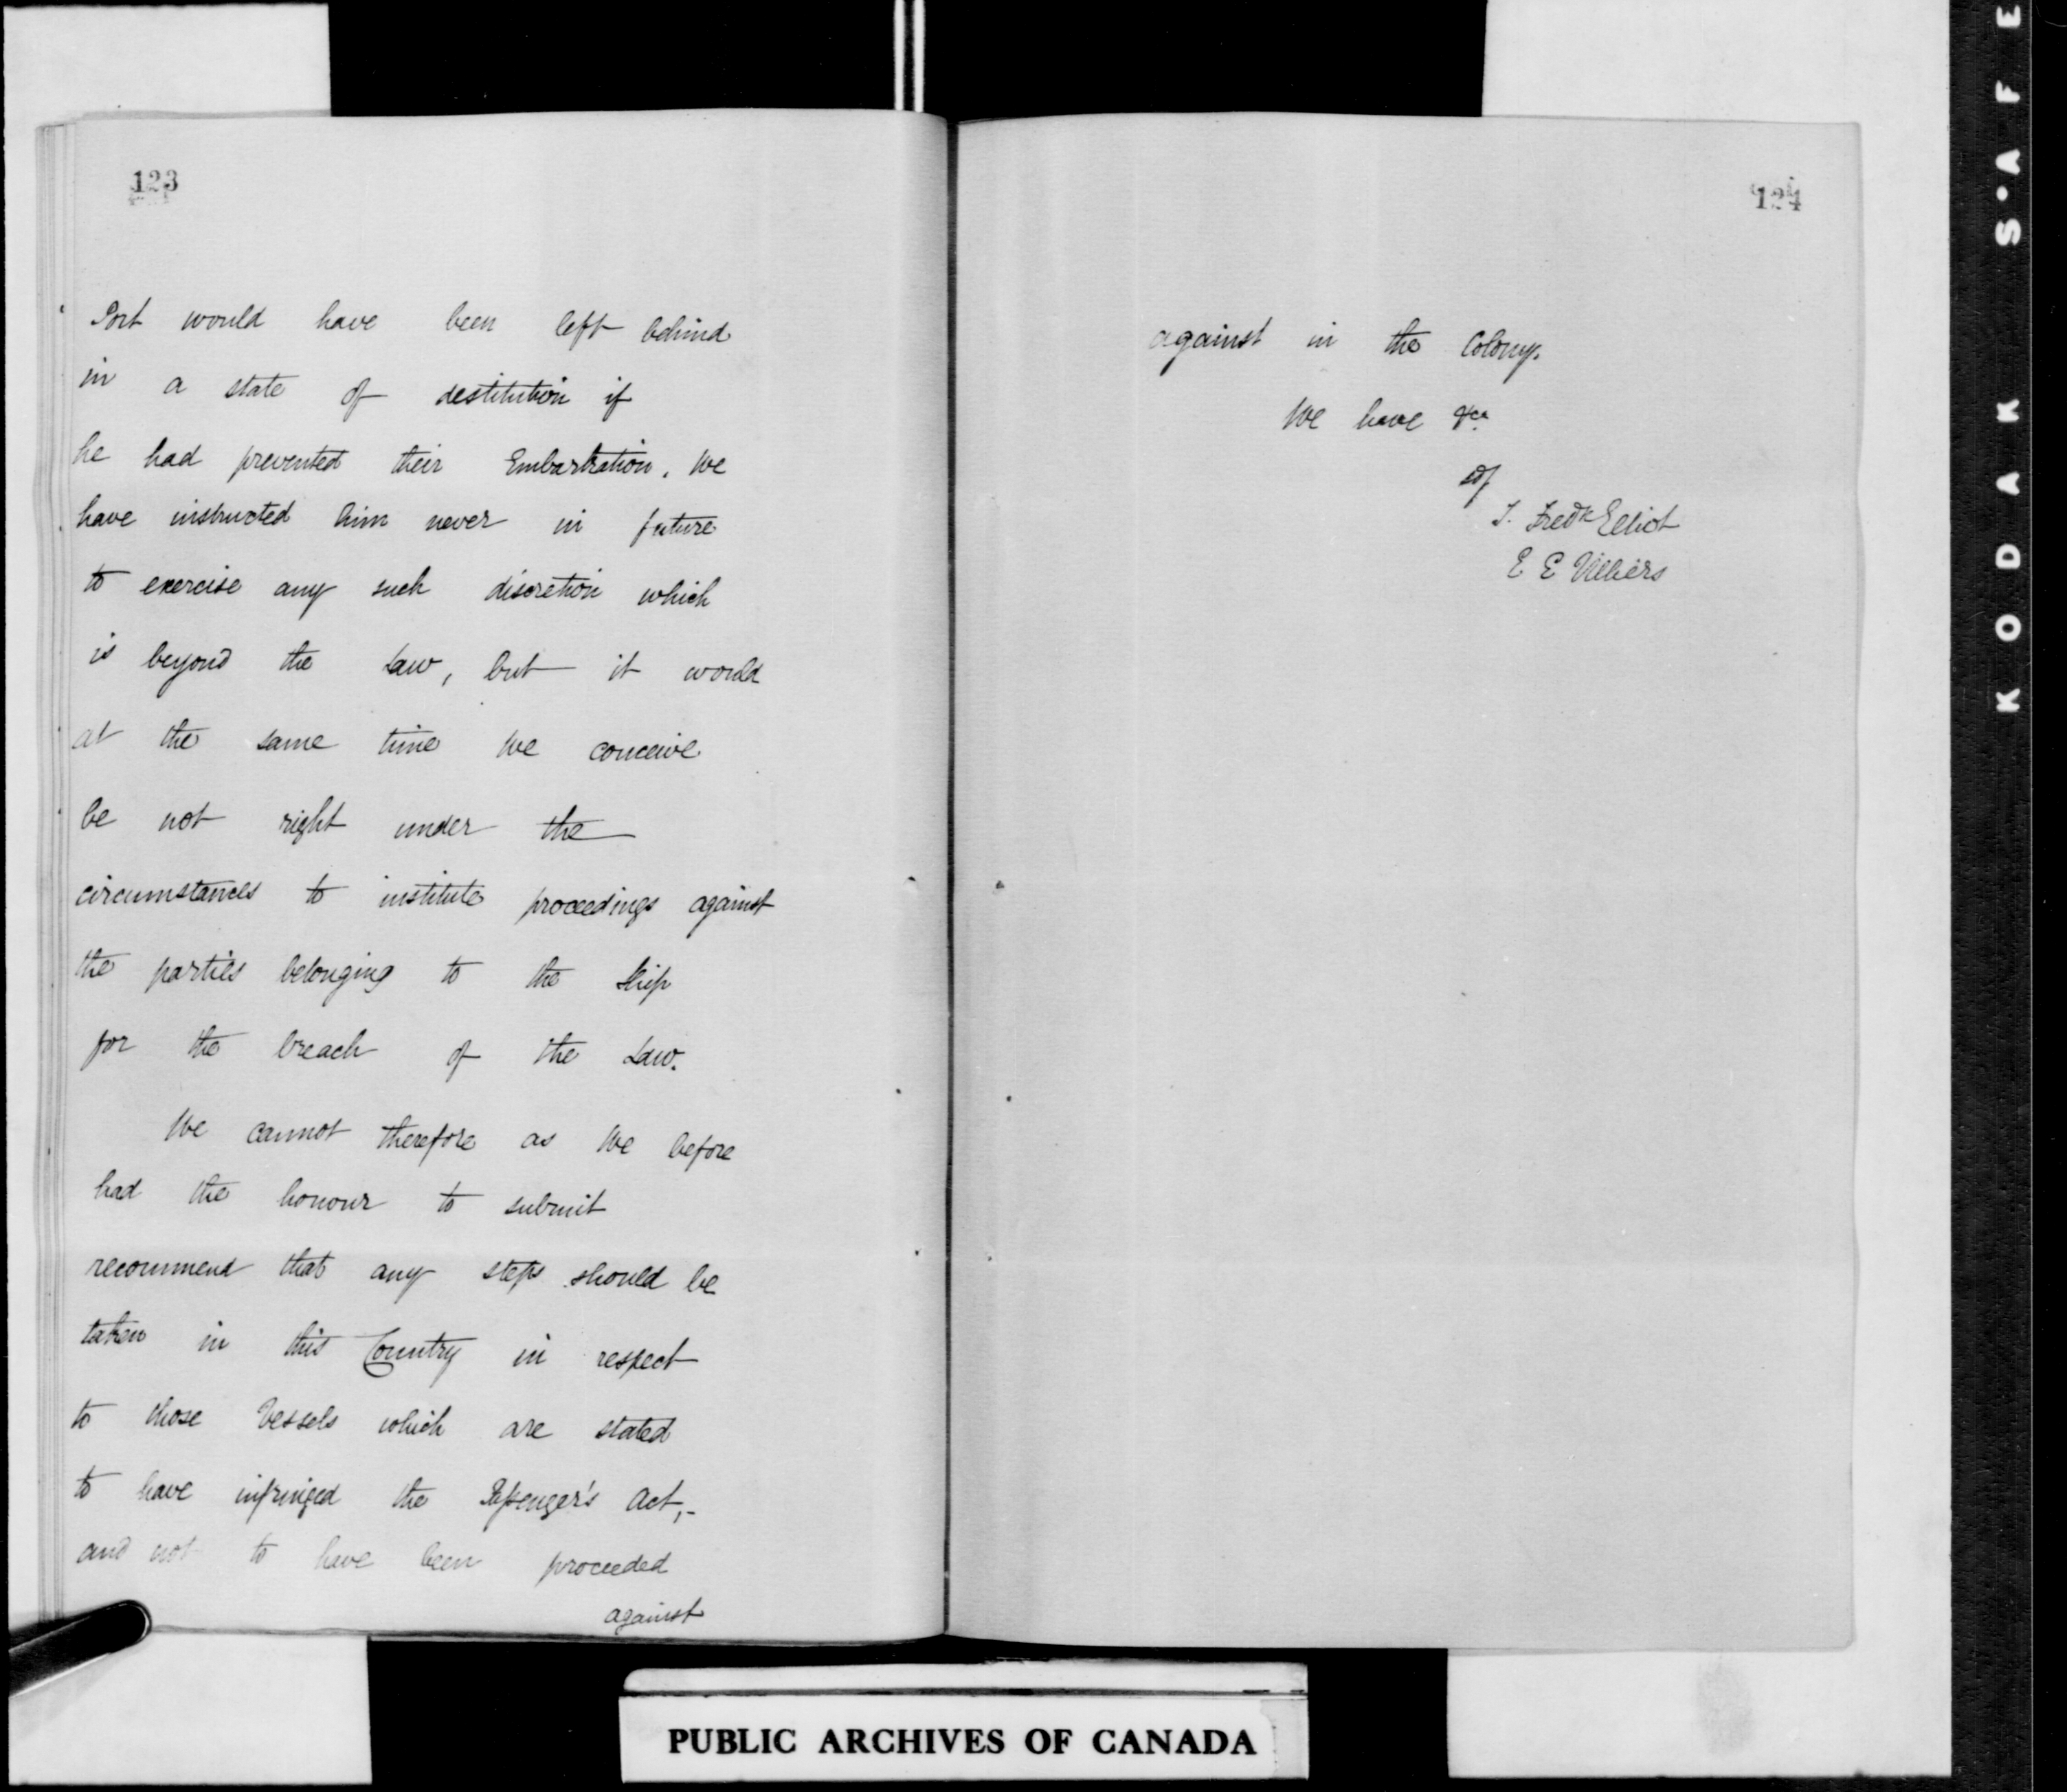 123
Port would have been left behind
in a state of destitution if
he had prevented their Embarkation. We
have instructed him never in future
to exercise any such discretion which
is beyond the Law, but it would
at the same time We conceive
be not right under the
circumstances to institute proceedings against
the parties belonging to the Ship
for the breach of the Law.
We cannot therefore as We before
had the honour to submit
recommend that any steps should be
taken in this Country in respect
to those Vessels which are stated
to have infringed the Passenger's Act,-
and not to have been proceeded
against
124
against in the Colony.
We have &ca
T. Fredk Elliot
E E Villiers
PUBLIC ARCHIVES OF CANADA
KODAK S·AFE